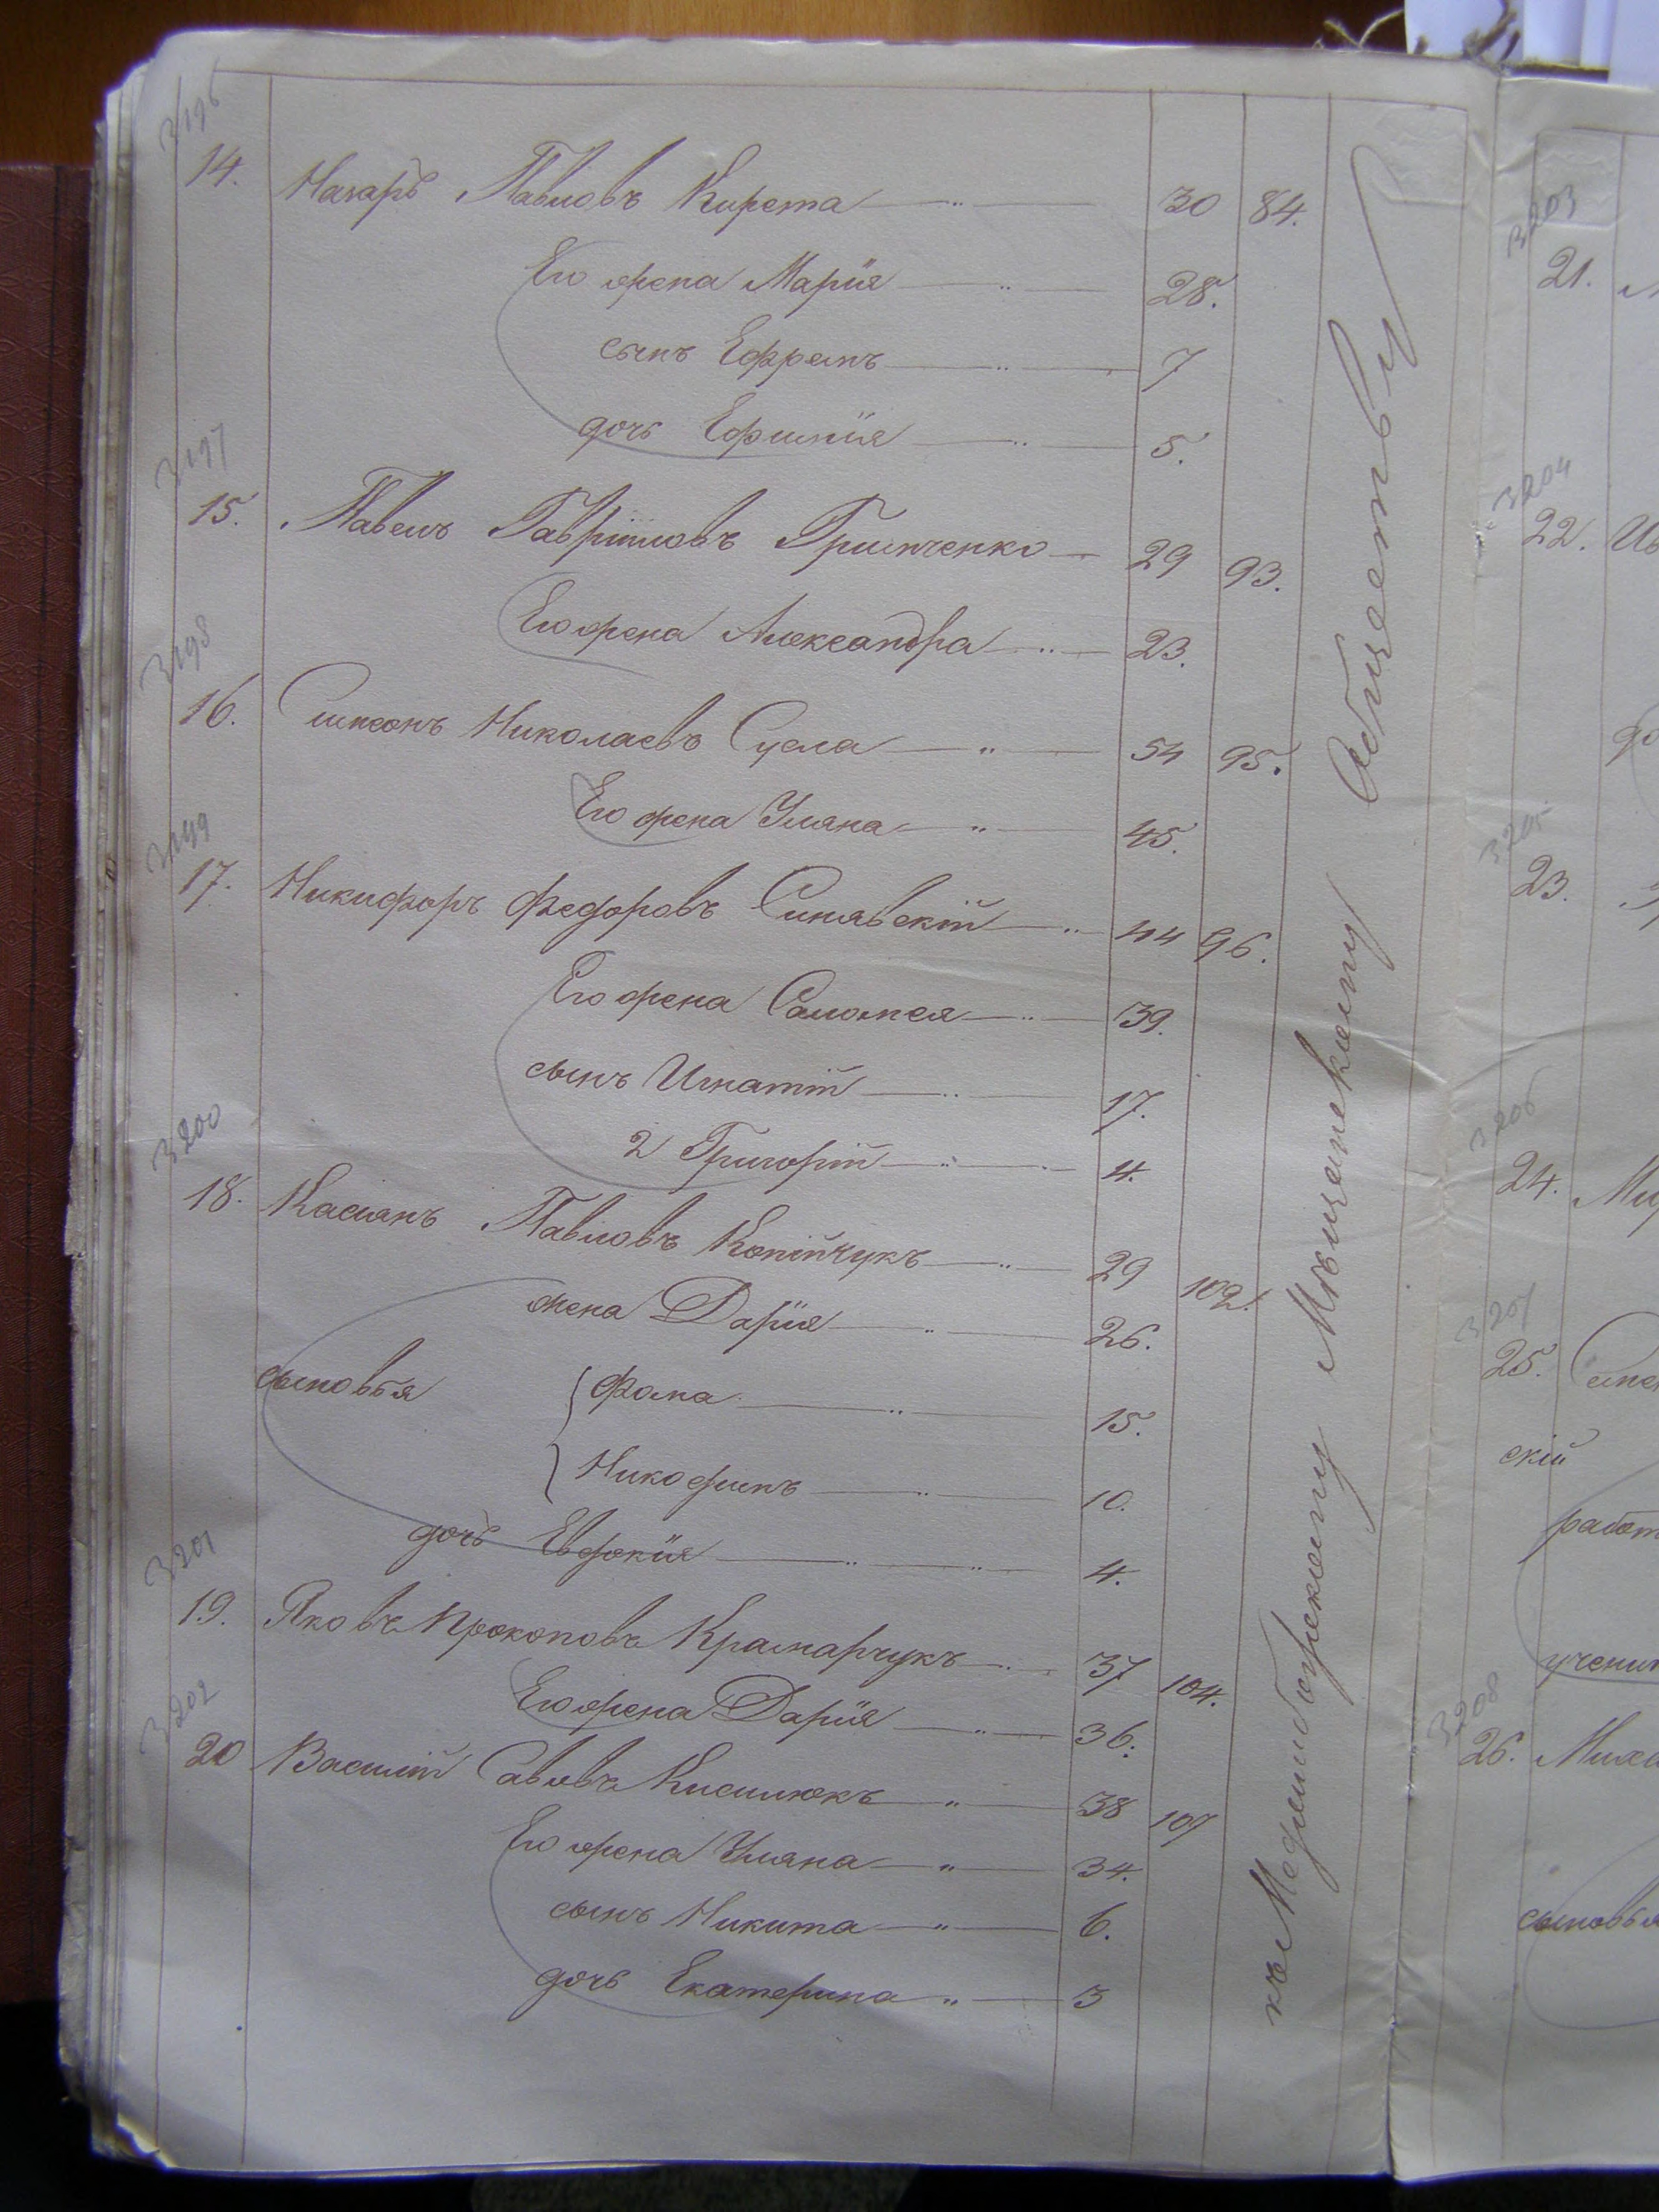 3196
14. Назаръ Павловъ Кирета 30 84.
Его жена Марія 28.
сынъ Ефремъ 7
дочь Ефимія 5.
3197
15. Павелъ Гавріиловъ Гримченко 29 93.
Его жена Александра 23.
3198
16. Симеонъ Николаевъ Сусла 54 95.
Его жена Уляна 45.
3199
17. Никифоръ Федоровъ Синявскій 44 96.
Его жена Саломея 39.
сынъ Игнатій 17.
2 Григорій 4.
3200
18. Касіянъ Павловъ Копійчукъ 29 102.
жена Дарія 26.
сыновья Фома 15.
Никодимъ 10.
дочь Евдокія 4.
3201
19. Яковъ Прокоповъ Крамарчукъ 37 104.
Его жена Дарія 36.
3202
20 Василій Савовъ Кисилюкъ 38 107
Его жена Уляна 34.
сынъ Никита 6.
дочь Екатерина 3
къ Меджибожскому Мѣщанскому Обществу
3203
21.
3204
22.
до
3205
23.
3206
24.
3207
25.
скій
работ
учени
3208
26. Миха
сыновья